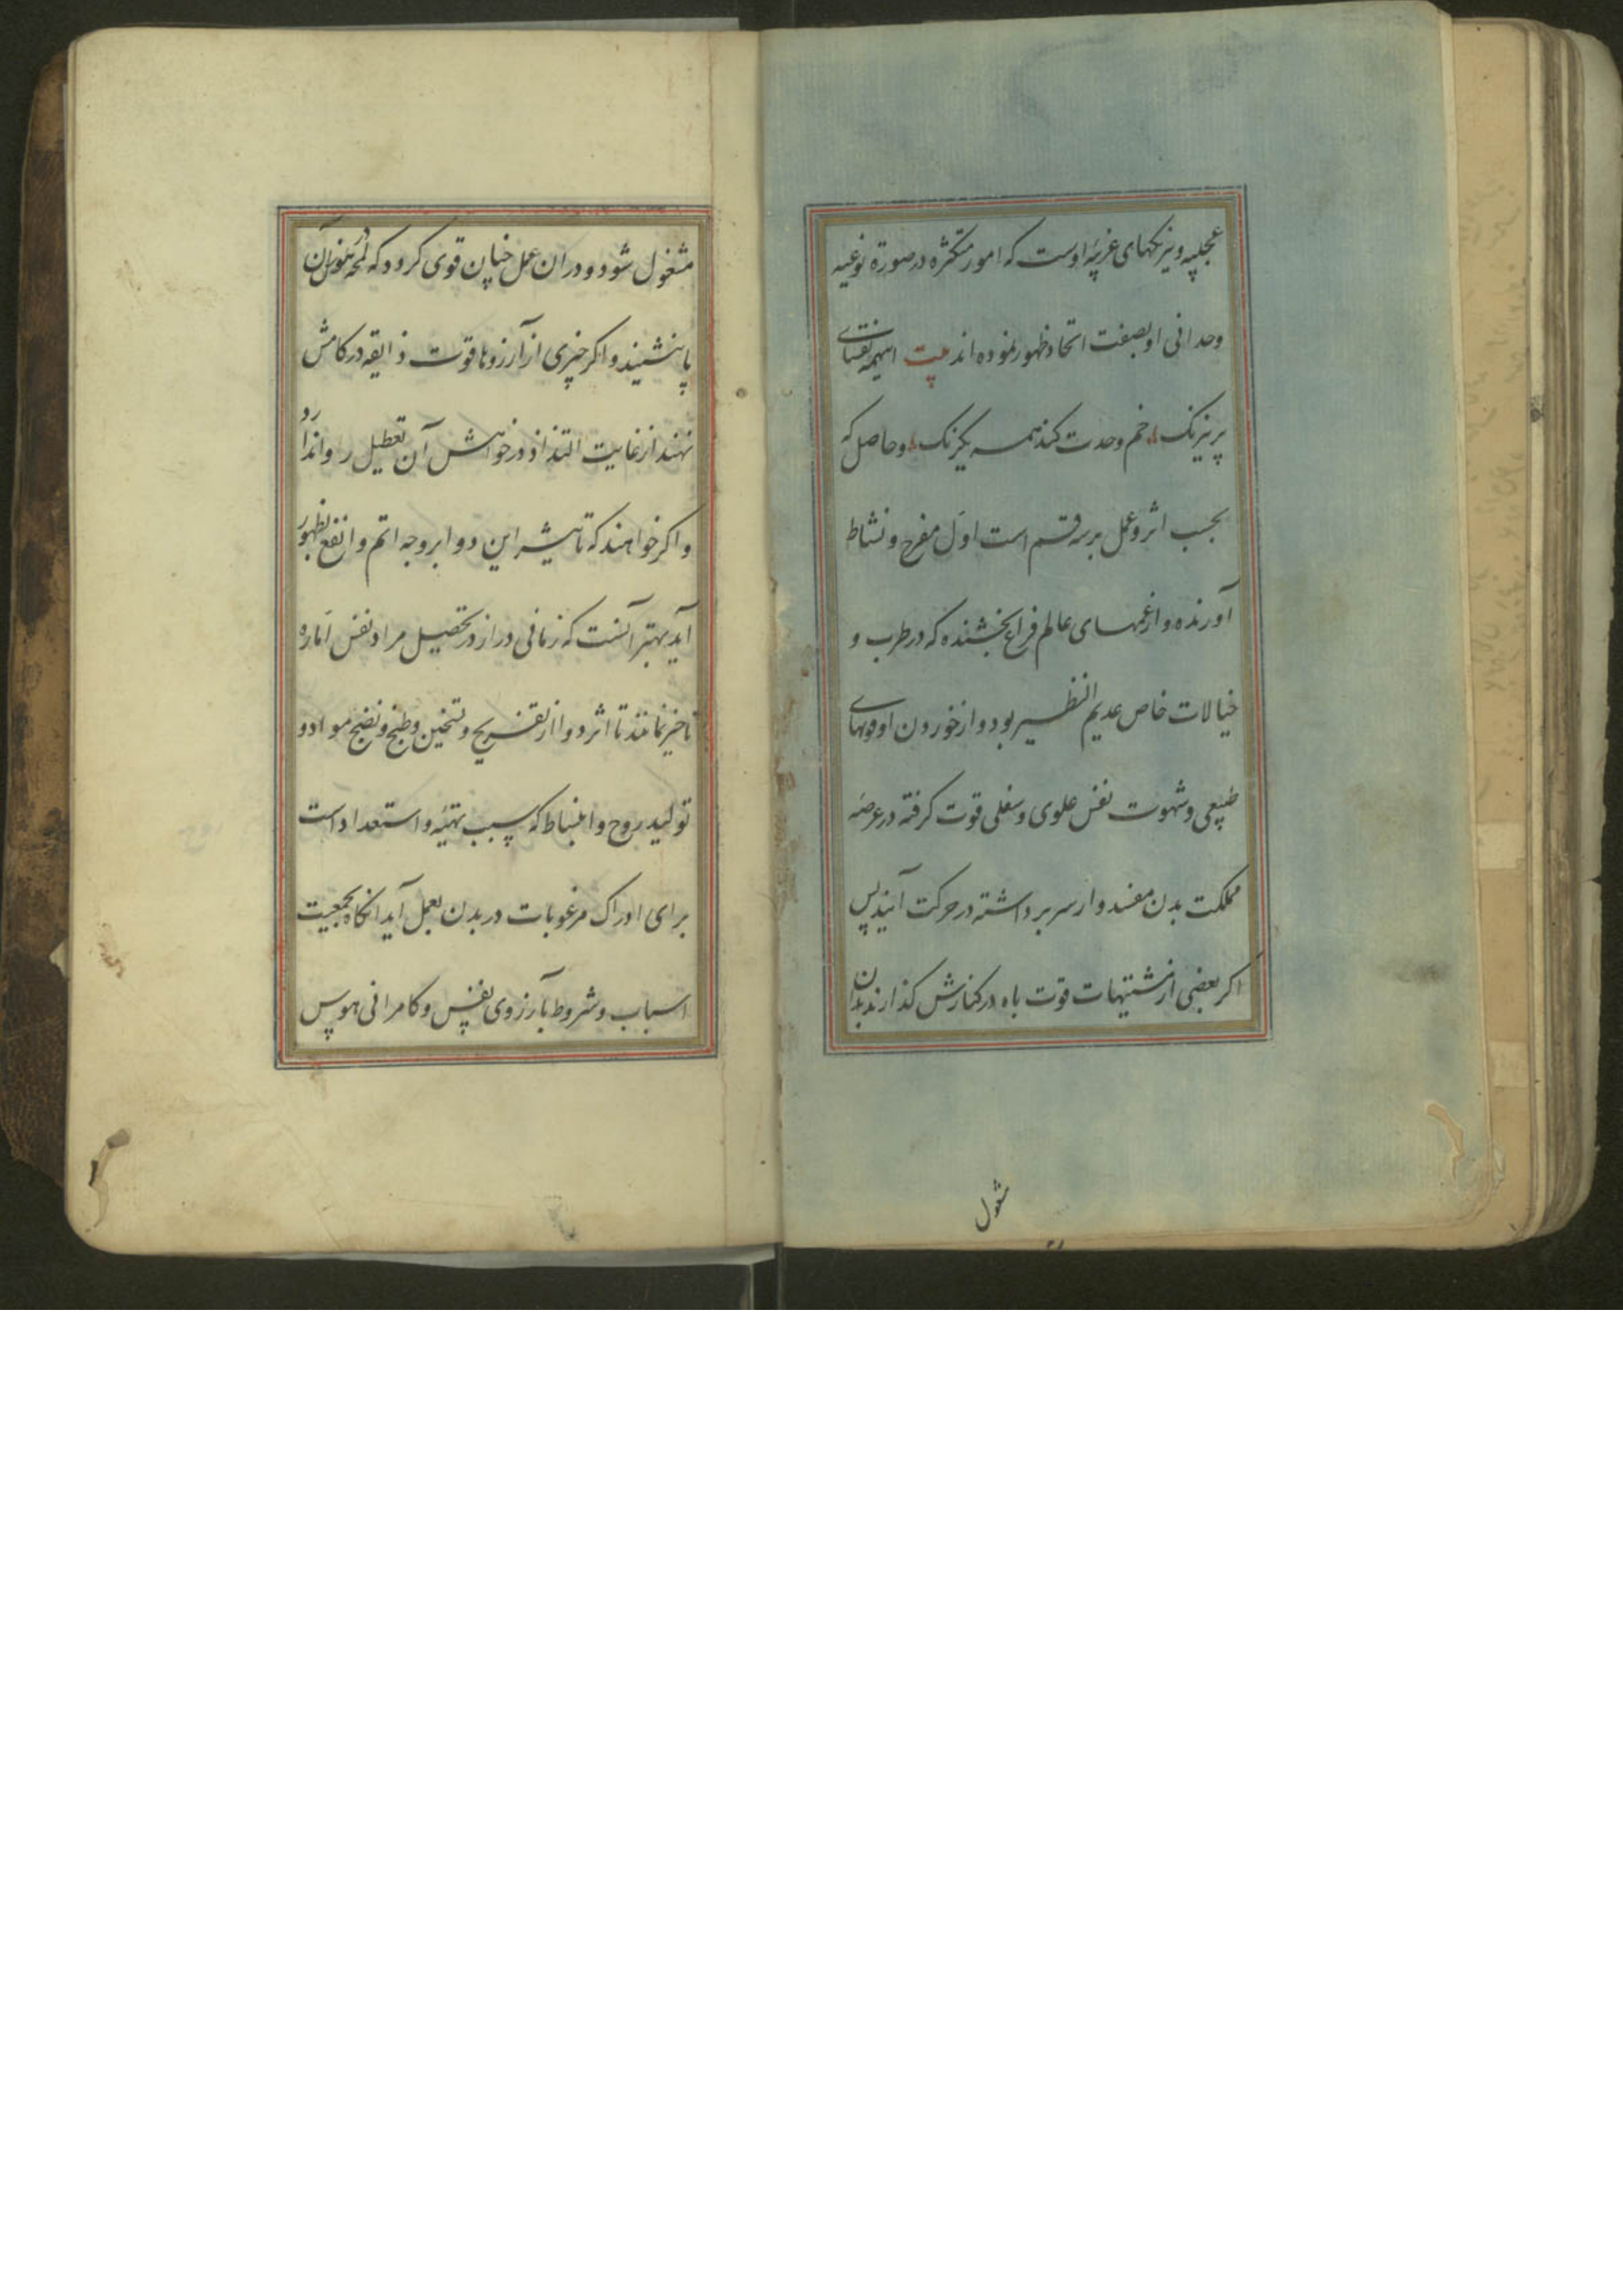 عجیبه و نیرنکهای غریبهٔ اوست که امور متکثره در صورة نوعیه
وحدانی او بصفت اتحاد ظهور نموده اند بیت اینهمه نقشهای
پر نیرنک خم وحدت کند همه یکرنک و حاصل که
بحسب اثر و عمل بر سه قسم است اول مفرح و نشاط
آورنده و از غمهای عالم فراغ بخشنده که در طرب و
خیالات خاص عدیم النظیر بود و از خوردن او قوتهای
طبیعی و شهوت نفس علوی و سفلی قوت کرفته در عرصهٔ
مملکت بدن مفسدوار سر برداشته در حرکت آیند پس
اکر بعضی از مشتهیات قوت باه در کنارش کذارند بدان
مشغول
مشغول شود و در ان عمل چنان قوی کردد که لمحه از هوس آن
باز ننشیند و اکر چیزی از آرزوها قوت ذایقه در کامش
نهند از غایت التذاذ در خواهش آن تعطیل روا ندارد
و اکر خواهند که تاثیر این دوا بر وجه اتم و انفع بظهور
آید بهتر آنست که زمانی دراز در تحصیل مراد نفس اماره
تاخیر نمایند تا اثر دوا از تفریح و تسخین و طبخ و نضج مواد و
تولید روح و انبساط که سبب تهیه و استعداد است
برای ادراک مرغوبات در بدن بعمل آید انکاه بجمعیت
اسباب و شروط بآرزوی نفس و کامرانی هوس